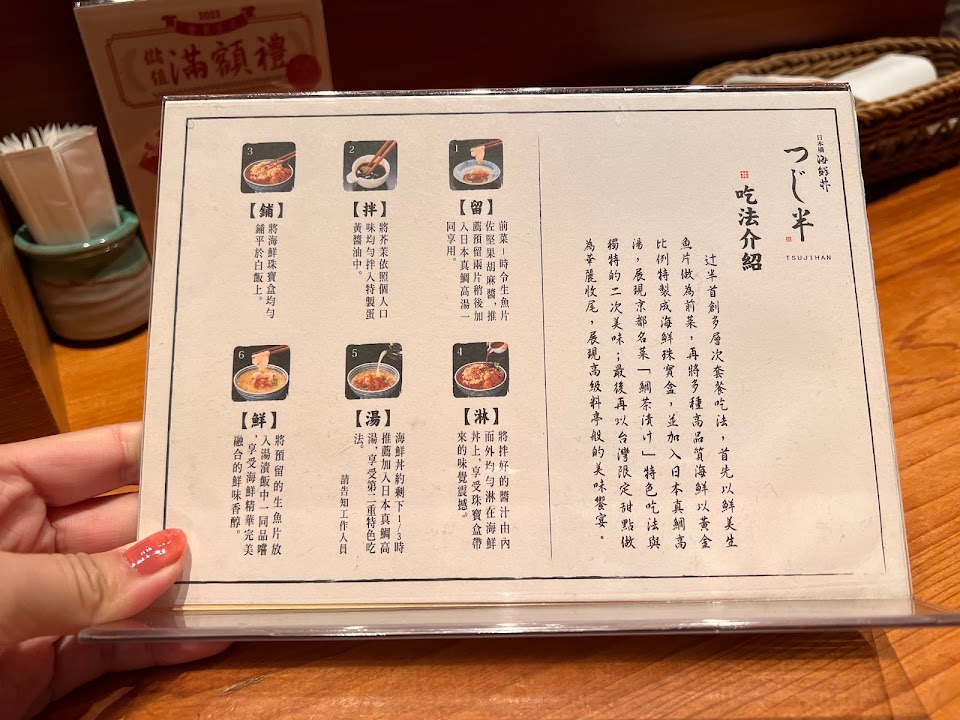 2022
儲值
滿額禮
日本橋
海鮮丼
つじ半
TSUJIHAN
吃法介紹
辻半首創多層次套餐吃法，首先以鮮美生
魚片做為前菜，再將多種高品質海鮮以黃金
比例特製成海鮮珠寶盒，並加入日本真鯛高
湯，展現京都名菜「鯛茶漬け」特色吃法與
獨特的二次美味；最後再以台灣限定甜點做
為華麗收尾，展現高級料亭般的美味饗宴。
1
【留】
前菜－時令生魚片
佐堅果胡麻醬，推
薦預留兩片稍後加
入日本真鯛高湯一
同享用。
2
【拌】
將芥茉依照個人口
味均勻拌入特製蛋
黃醬油中。
3
【鋪】
將海鮮珠寶盒均勻
鋪平於白飯上。
4
【淋】
將拌好的醬汁由內
而外均勻淋在海鮮
丼上，享受珠寶盒帶
來的味覺震撼。
5
【湯】
海鮮丼約剩下1/3時
推薦加入日本真鯛高
湯，享受第二重特色吃
法。
請告知工作人員
6
【鮮】
將預留的生魚片放
入湯漬飯中一同品嚐
，享受海鮮精華完美
融合的鮮味香醇。